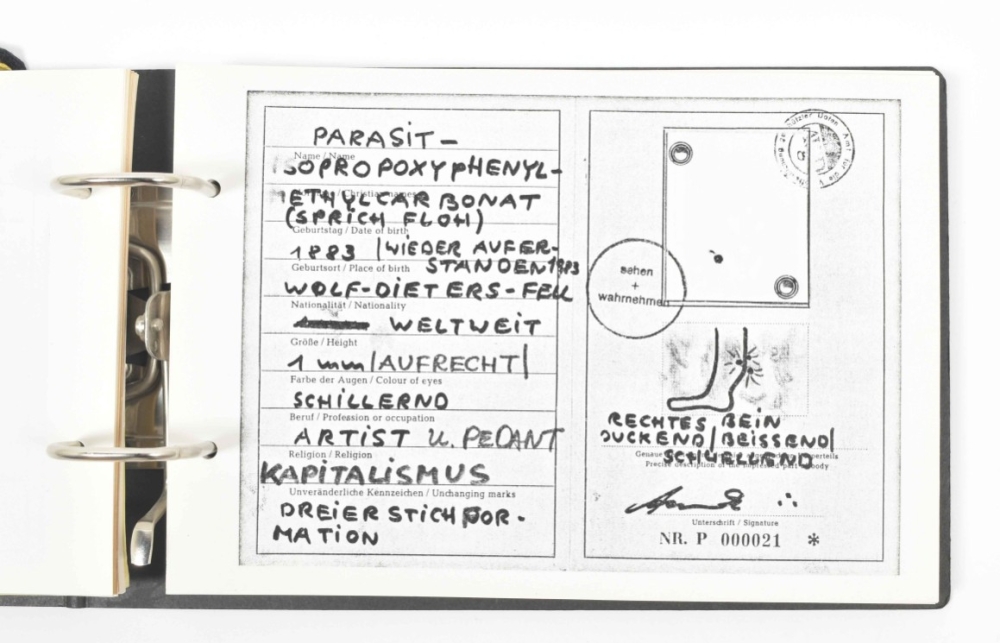 PARASIT-
Name / Name
ISOPROPOXYPHENYL-
ETHYLCARBONAT
(SPRICH FLOH)
Geburtstag / Date of birth
1883 |WIEDER AUFER-
STANDEN 1983
Geburtsort / Place of birth
WOLF-DIETERS-FELL
Nationalität / Nationality
WELTWEIT
Größe / Height
1 mm |AUFRECHT|
Farbe der Augen / Colour of eyes
SCHILLERND
Beruf / Profession or occupation
ARTIST U. PEDANT
Religion / Religion
KAPITALISMUS
Unveränderliche Kennzeichen / Unchanging marks
DREIER STICH FOR-
MATION
sehen
+
wahrnehmen
RECHTES BEIN
JUCKEND|BEISSEND|
SCHWELLEND
Unterschrift / Signature
NR. P 000021 *